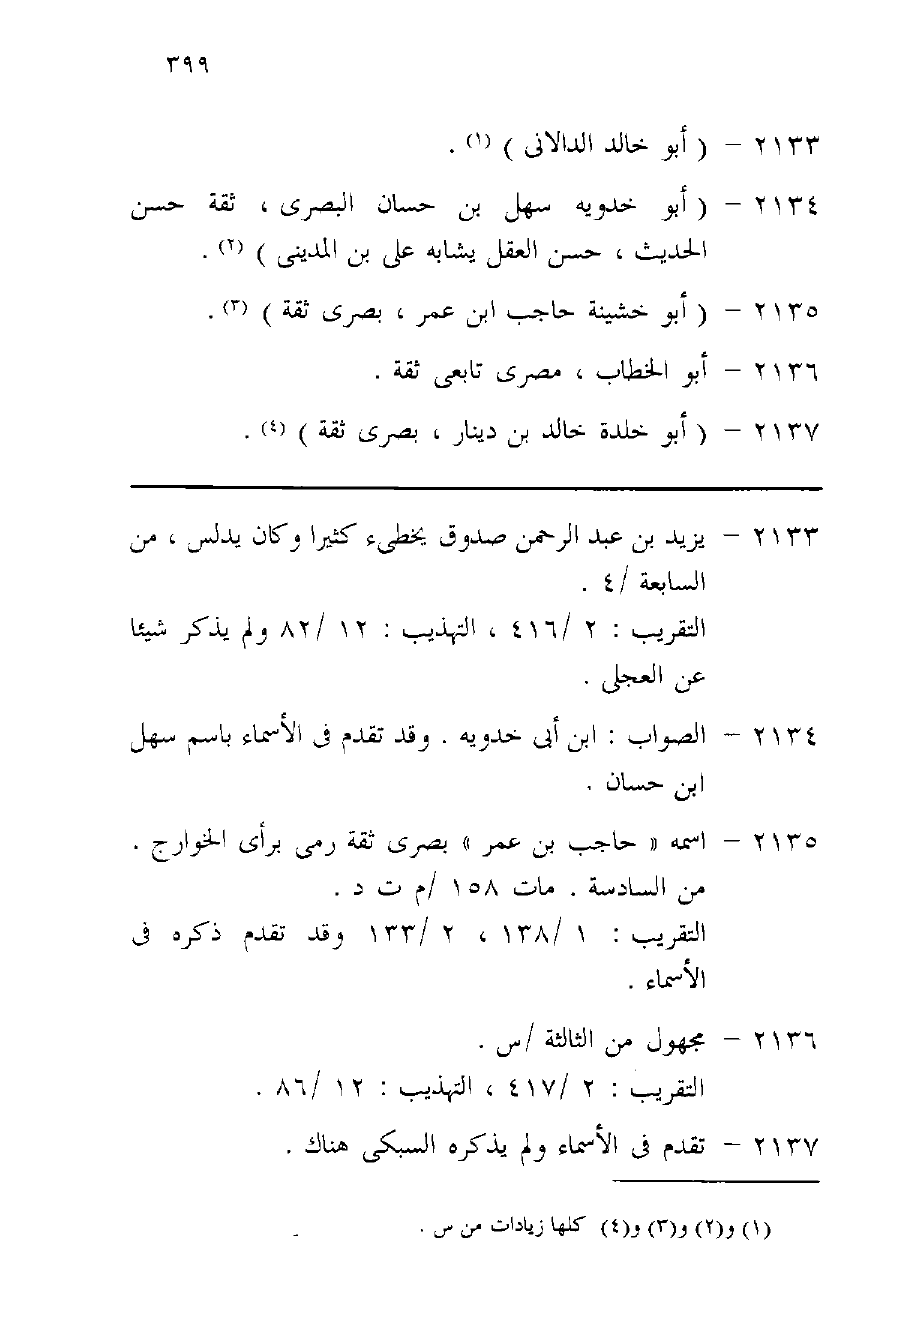 ٣٩٩
٢١٣٣ – ( أبو خالد الدالانى ) (١) .
٢١٣٤ – ( أبو خدويه سهل بن حسان البصرى ، ثقة حسن
الحديث ، حسن العقل يشابه على بن المدينى ) (٢) .
٢١٣٥ – ( أبو خشينة حاجب ابن عمر ، بصرى ثقة ) (٣) .
٢١٣٦ – أبو الخطاب ، مصرى تابعى ثقة .
٢١٣٧ – ( أبو خلدة خالد بن دينار ، بصرى ثقة ) (٤) .
٢١٣٣ – يزيد بن عبد الرحمن صدوق يخطىء كثيرا وكان يدلس ، من
السابعة /٤ .
التقريب : ٢ /٤١٦ ، التهذيب : ١٢ /٨٢ ولم يذكر شيئا
عن العجلى .
٢١٣٤ – الصواب : ابن أبى خدويه . وقد تقدم فى الأسماء باسم سهل
ابن حسان .
٢١٣٥ – اسمه « حاجب بن عمر » بصرى ثقة رمى برأى الخوارج .
من السادسة . مات ١٥٨ /م ت د .
التقريب : ١ /١٣٨ ، ٢ /١٣٣ وقد تقدم ذكره فى
الأسماء .
٢١٣٦ – مجهول من الثالثة /س .
التقريب : ٢ /٤١٧ ، التهذيب : ١٢ /٨٦ .
٢١٣٧ – تقدم فى الأسماء ولم يذكره السبكى هناك .
(١) و(٢) و(٣) و(٤) كلها زيادات من س .